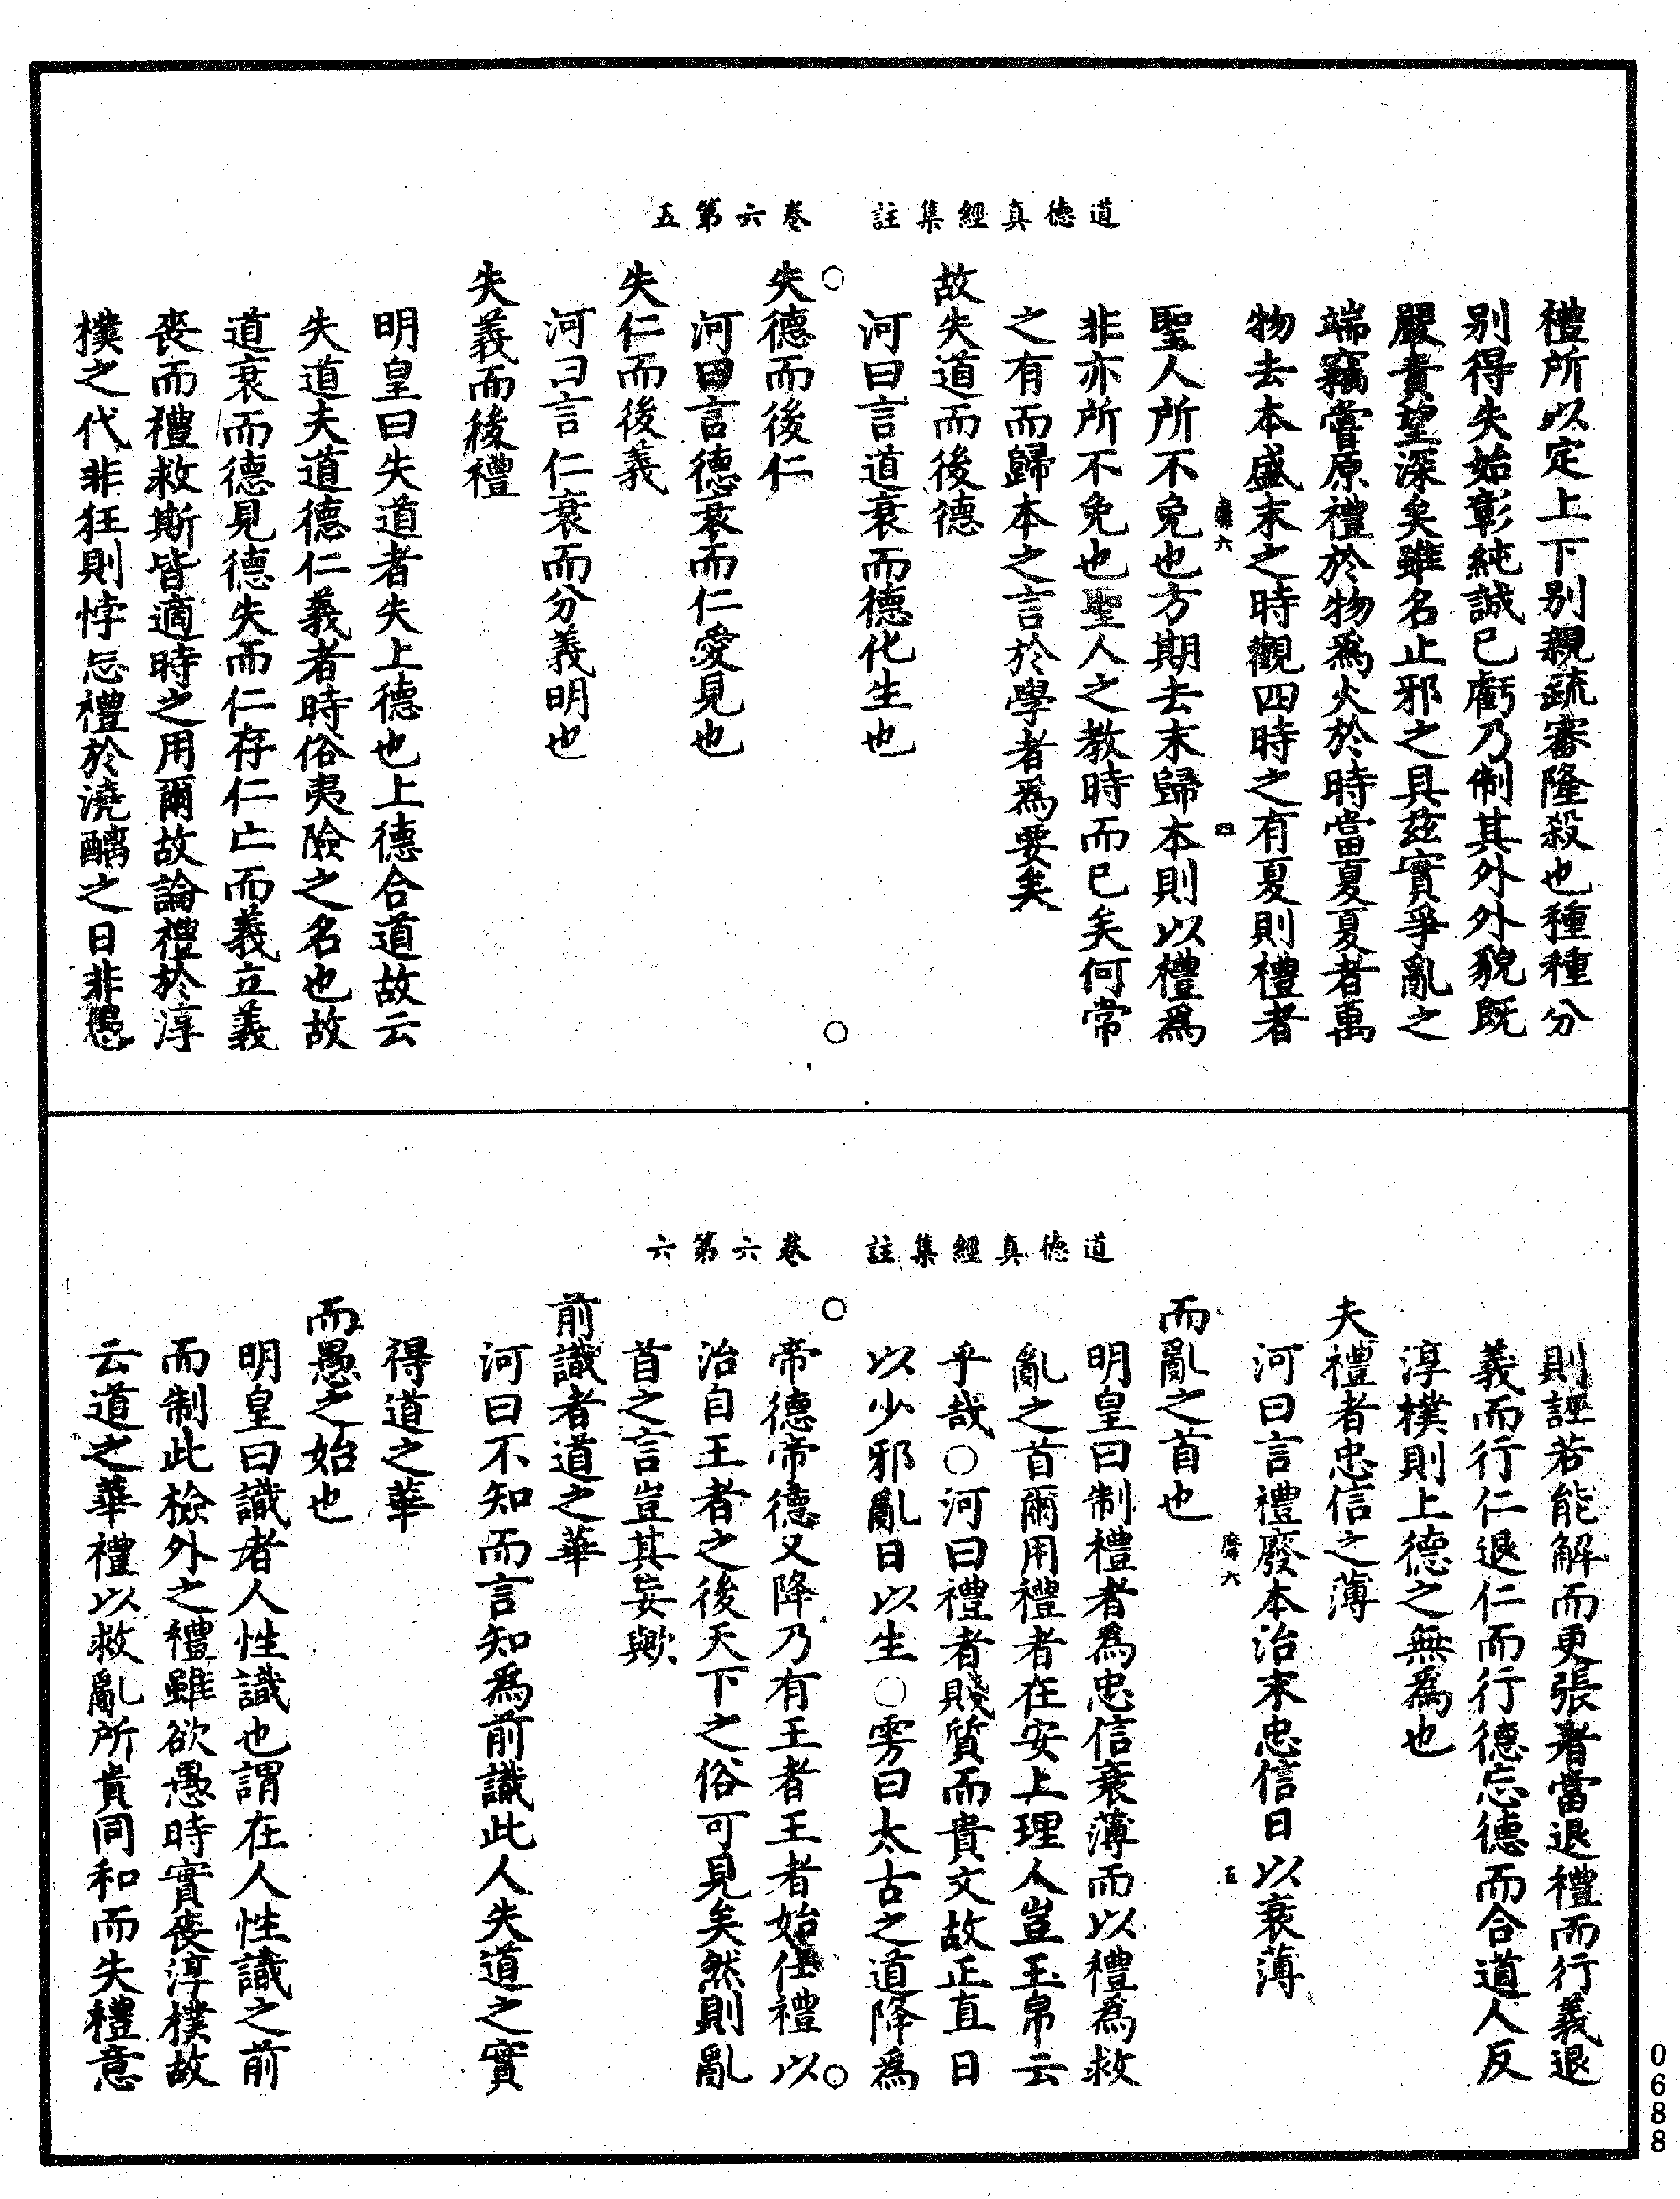 道德真經集註　卷六第五
禮所以定上下別親疏審隆殺也種種分
別得失始彰純誠已虧乃制其外外貌既
嚴責望深矣雖名止邪之具茲實爭亂之
端竊嘗原禮於物爲火於時當夏夏者萬
物去本盛末之時觀四時之有夏則禮者
六　四
聖人所不免也方期去末歸本則以禮爲
非亦所不免也聖人之教時而已矣何常
之有而歸本之言於學者爲要矣
故失道而後德
河曰言道衰而德化生也
○　○
失德而後仁
河曰言德衰而仁愛見也
失仁而後義
河曰言仁衰而分義明也
失義而後禮
明皇曰失道者失上德也上德合道故云
失道夫道德仁義者時俗夷險之名也故
道衰而德見德失而仁存仁亡而義立義
喪而禮救斯皆適時之用爾故論禮於淳
樸之代非狂則悖忘禮於澆醨之日非愚
道德真經集註　卷六第六
則誣若能解而更張者當退禮而行義退
義而行仁退仁而行德忘德而合道人反
淳樸則上德之無爲也
夫禮者忠信之薄
河曰言禮廢本治末忠信日以衰薄
六　五
而亂之首也
明皇曰制禮者爲忠信衰薄而以禮爲救
亂之首爾用禮者在安上理人豈玉帛云
乎哉○河曰禮者賤質而貴文故正直日
以少邪亂日以生○雱曰太古之道降爲
○　○
帝德帝德又降乃有王者王者始任禮以
治自王者之後天下之俗可見矣然則亂
首之言豈其妄歟
前識者道之華
河曰不知而言知爲前識此人失道之實
得道之華
而愚之始也
明皇曰識者人性識也謂在人性識之前
而制此檢外之禮雖欲愚時實喪淳樸故
云道之華禮以救亂所貴同和而失禮意
0688